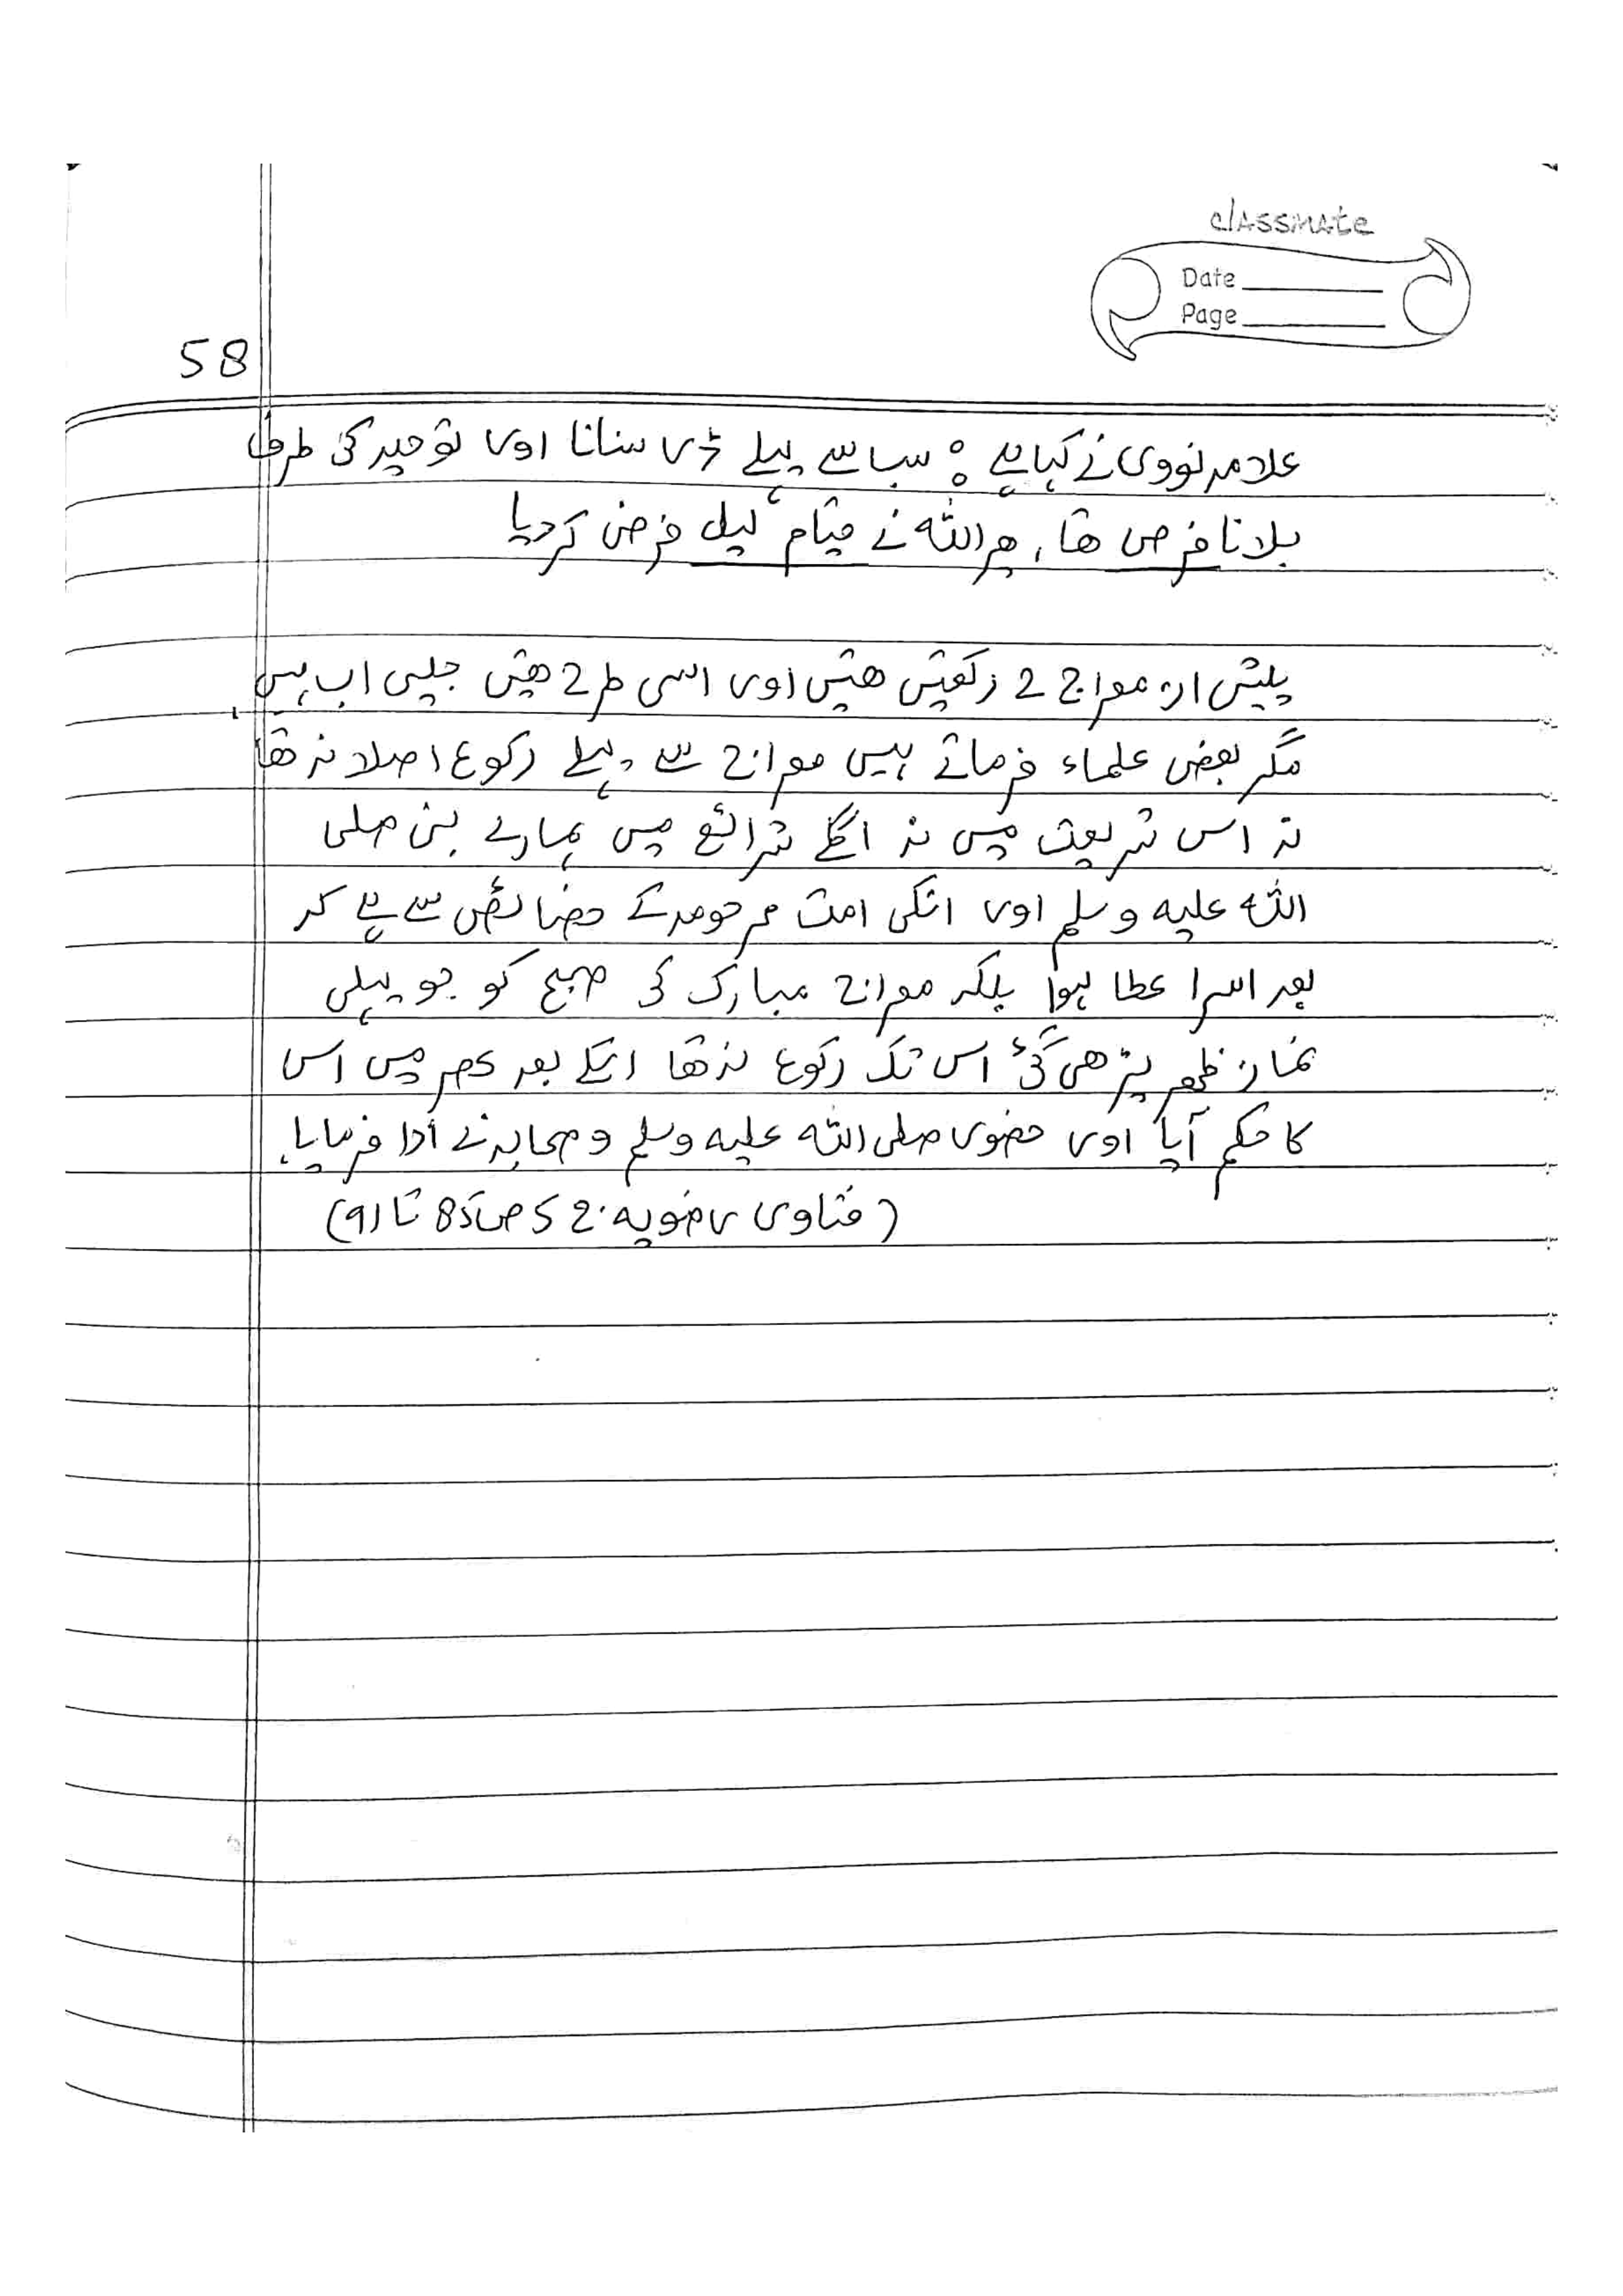 classmate
Date
Page
58
علامہ نووی نے کہا ہے کہ سب سے پہلے ڈر سنانا اور توحید کی طرف
بلانا فرض تھا، پھر اللہ نے قیام لیل فرض کر دیا
پیش از معراج 2 رکعتیں تھیں اور اسی طرح تھیں جیسی اب ہیں
مگر بعض علماء فرماتے ہیں معراج سے پہلے رکوع اصلا نہ تھا
نہ اس شریعت میں نہ اگلے شرائع میں ہمارے نبی صلی
اللہ علیہ وسلم اور انکی امت مرحومہ کے خصائص سے ہے کہ
بعد اسرا عطا ہوا بلکہ معراج مبارک کی صبح کو جو پہلی
نماز ظہر پڑھی گئی اس تک رکوع نہ تھا اسکے بعد عصر میں اس
کا حکم آیا اور حضور صلی اللہ علیہ وسلم و صحابہ نے ادا فرمایا
(فتاوی رضویہ: ج 5 ص 85 تا 91)